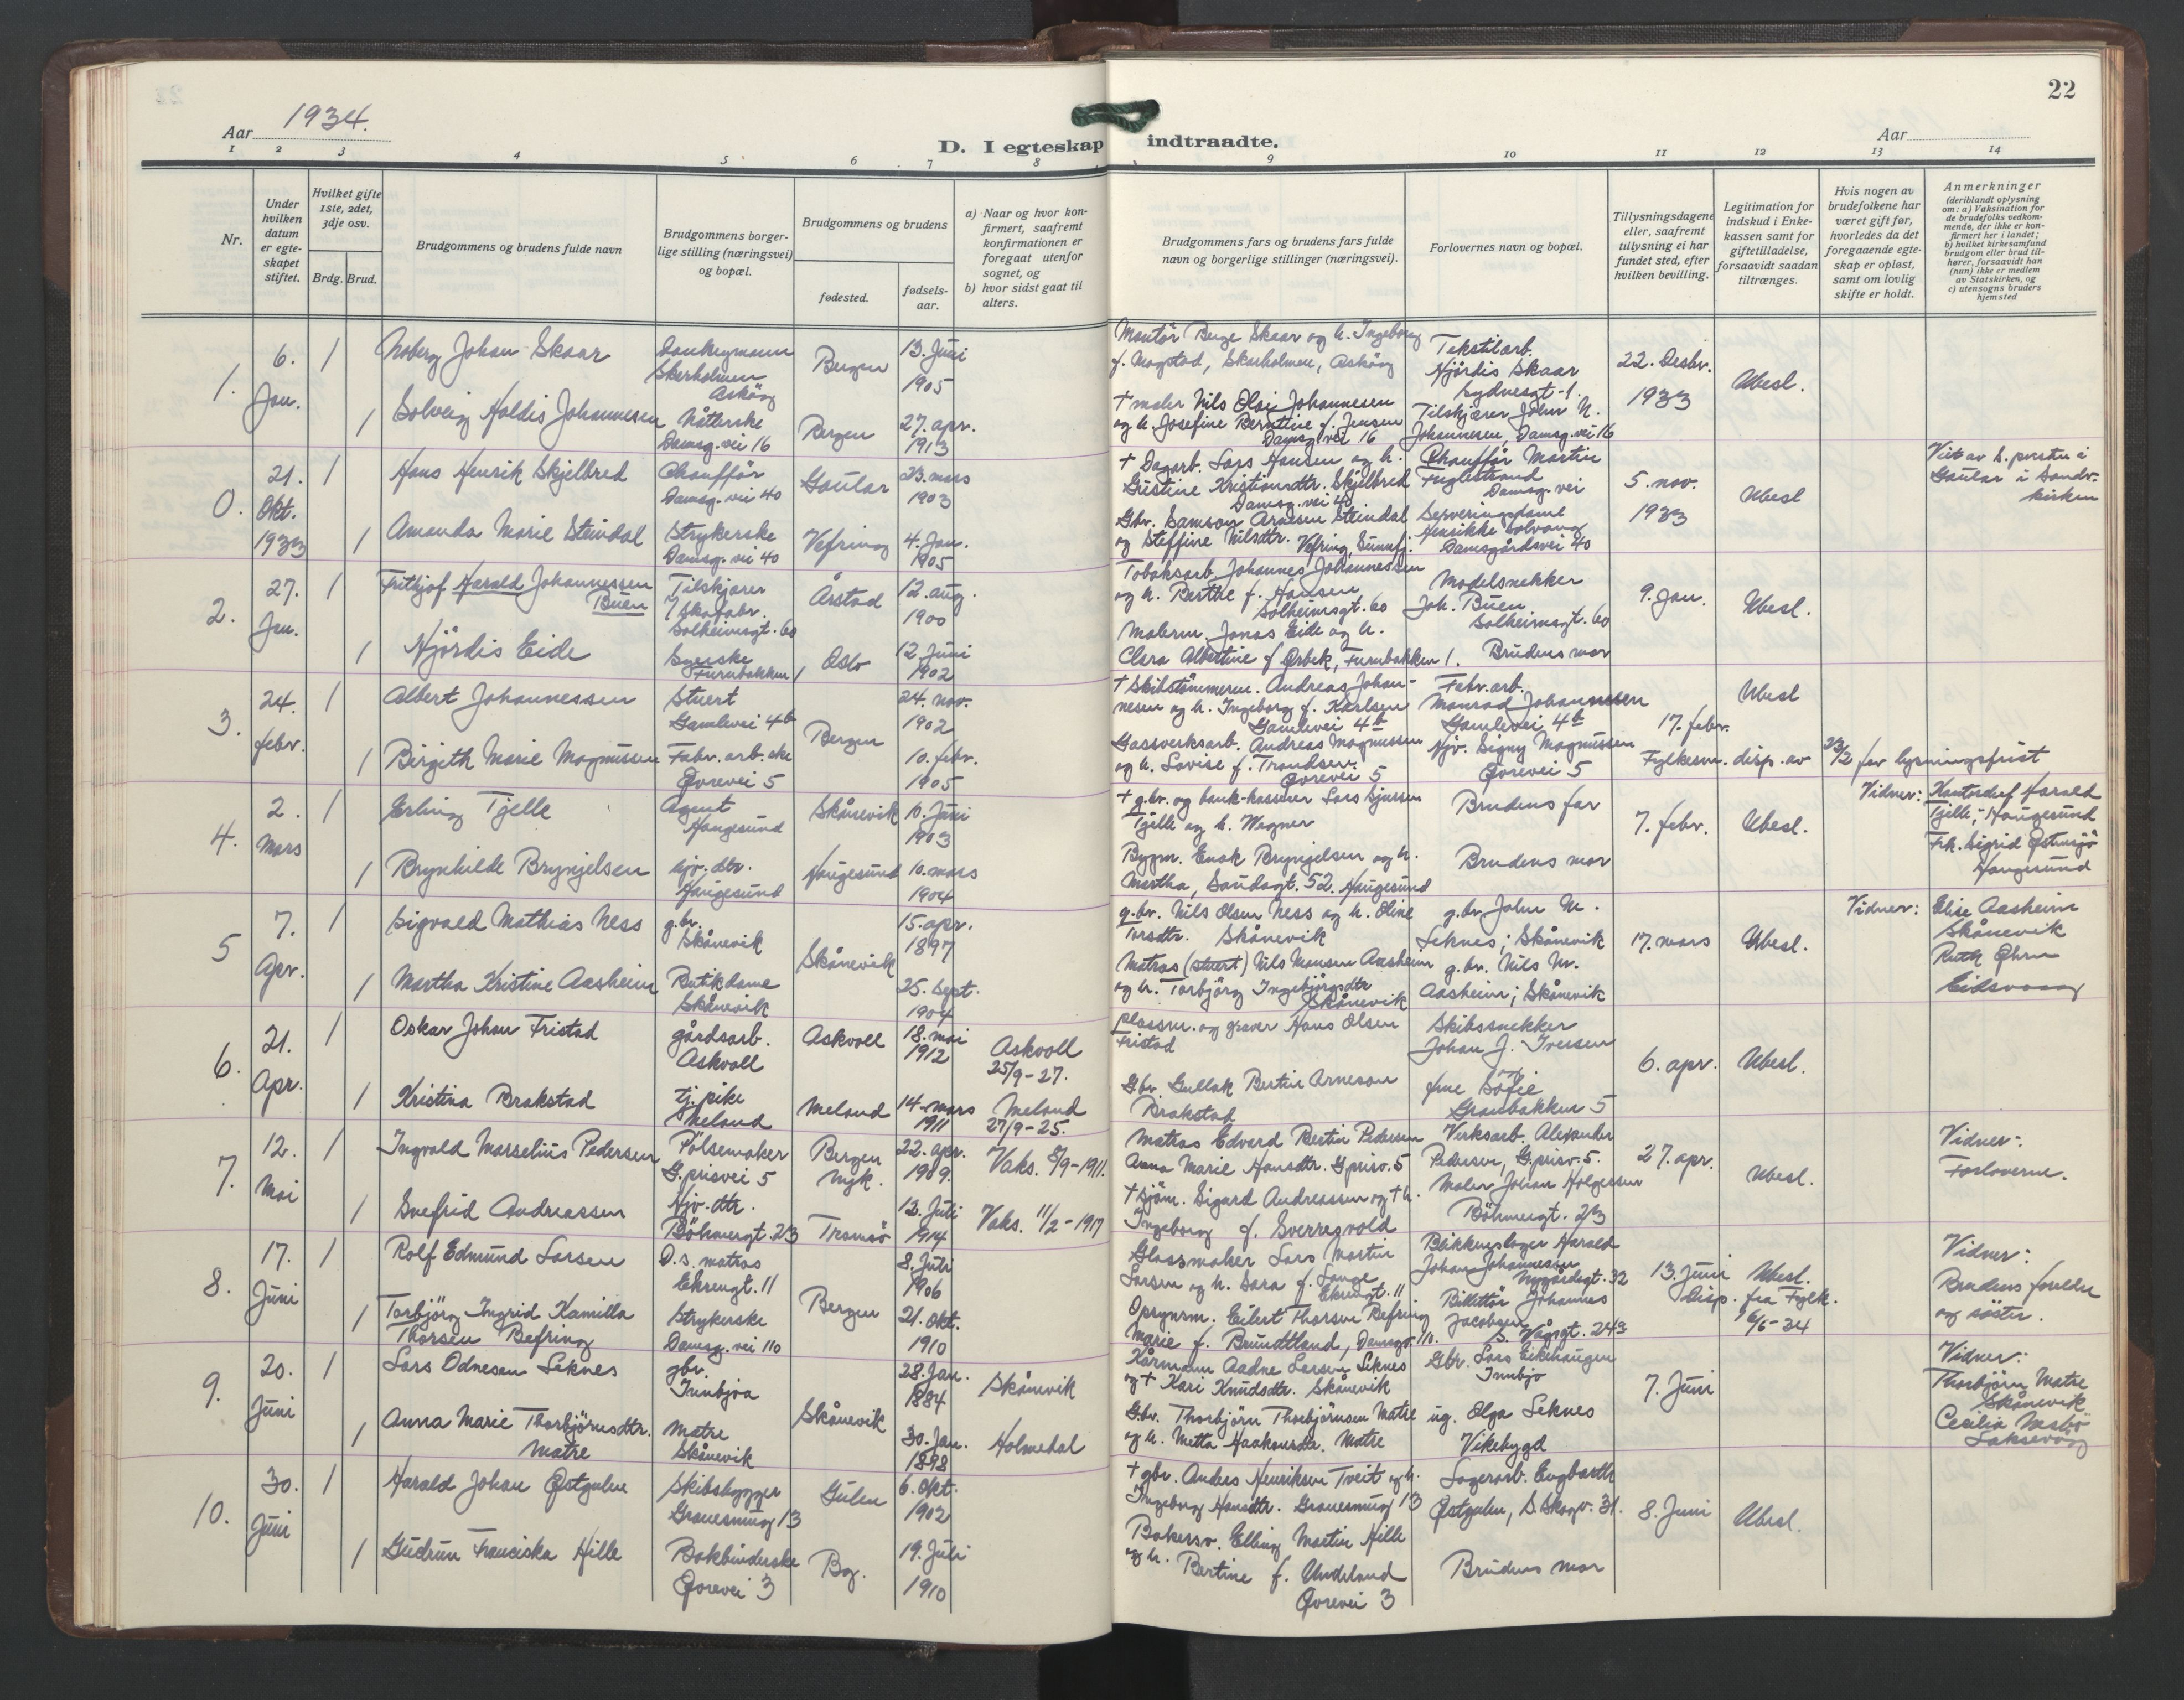 22
Aar 1934.
Aar
D. I egteskap indtraadte.
1 2 3 4 5 6 7 8 9 10 11 12 13 14
Nr.
Under hvilken datum er egteskapet stiftet.
Hvilket gifte 1ste, 2det, 3dje osv.
Brdg. Brud.
Brudgommens og brudens fulde navn
Brudgommens borgerlige stilling (næringsvei) og bopæl.
Brudgommens og brudens
fødested.
fødselsaar.
a) Naar og hvor konfirmert, saafremt konfirmationen er foregaat utenfor sognet, og
b) hvor sidst gaat til alters.
Brudgommens fars og brudens fars fulde navn og borgerlige stillinger (næringsvei).
Forlovernes navn og bopæl.
Tillysningsdagene eller, saafremt tillysning ei har fundet sted, efter hvilken bevilling.
Legitimation for indskud i Enkekassen samt for giftetilladelse, forsaavidt saadan tiltrænges.
Hvis nogen av brudefolkene har været gift før, hvorledes da det foregaaende egteskap er opløst, samt om lovlig skifte er holdt.
Anmerkninger
(deriblandt oplysning om: a) Vaksination for de brudefolks vedkommende, der ikke er konfirmert her i landet;
b) hvilket kirkesamfund brudgom eller brud tilhører, forsaavidt han (hun) ikke er medlem av Statskirken, og
c) utensogns bruders hjemsted
1. 6. Jan. 1
Johan Skaar
Donkeymann
Skarholmen
Askøy
Bergen
13. Juni
1905
Montör Berge Skaar og h. Ingeborg
f. Mogstad, Skarholmen, Askøy
Tekstilarb.
Hjördis Skaar
Sydnesgt. 1.
22. Desbr.
1933
Ubesl.
1 Solveig Haldis Johannesen
Nåtterske
Damsg. vei 16
Bergen
27. apr.
1913
† maler Nils Olai Johannesen
og h. Josefine Berntine f. Jensen
Damsg. vei 16
Tilskjærer John N.
Johannesen, Damsg. vei 16
0. 21. Okt. 1933 1
Hans Henrik Skjelbred
Chauffør
Damsg. vei 40
Gaular
23. mars
1903
† Dagarb. Lars Hansen og h.
Gustine Kristiansdtr. Skjelbred
Damsg. vei 40
Chauffør Martin
Fuglestrand
Damsg. vei
5. nov.
1933
Ubesl
Viet av s. presten i
Gaular i Sande
kirken
1 Amanda Marie Steindal
Strykerske
Damsg. vei 40
Vefring
4. Jan.
1905
Gbr. Samson Arnesen Steindal
og Steffine Nilsdtr. Vefring, Sunnfj.
Serveringsdame
Henrikke Solvang
Damsgårdsvei 40
2. 27. Jan. 1
Frithjof Harald Johannessen
Buen
Tilskjærer
i skofabr.
Solheimsgt. 60
Årstad
12. aug.
1900
Tobaksarb. Johannes Johannessen
og h. Berthe f. Hansen
Solheimsgt. 60
Modelsnekker
Joh. Buen
Solheimsgt. 60
9. Jan.
Ubesl.
1 Hjördis Eide
Syerske
Furubakken 1
Oslo
12. Juni
1902
Malerm. Jonas Eide og h.
Clara Albertine f. Ørbek, Furubakken 1.
Brudens mor
3. 24. febr. 1
Albert Johannessen
Stuert
Gamlevei 4b
Bergen
24. nov.
1902
† Skibstömmerm. Andreas Johannesen
og h. Ingeborg f. Karlsen
Gamlevei 4b
Fabr. arb.
Monrad Johannessen
Gamlevei 4b
17. febr.
Ubesl
1 Birgith Marie Magnussen
Fabr. arb. ske
Øvrevei 5
10. febr.
1905
Gassverksarb. Andreas Magnussen
og h. Lovise f. Trondsen
Øvrevei 5
Hjv. Signy Magnussen
Øvrevei 5
Fylkesm. disp. av 23/2 for lysningsfrist
4. 2. Mars 1
Erling Tjelle
Agent
Haugesund
Skånevik
10. Juni
1903
† g.br. og bank-kasserer Lars
Tjelle og h. Wagner
Brudens far
7. febr.
Ubesl.
Vidner: Kontorchef Harald
Tjelle, Haugesund
Frk. Sigrid Østensjö
Haugesund
1 Brynhilde Brynjelsen
hjv. dtr.
Haugesund
Haugesund
10. mars
1904
Bygm. Enok Brynjelsen og h.
Martha, Sundagt. 52. Haugesund
Brudens mor
5 7. Apr. 1
Sigvald Mathias Ness
g.br.
Skånevik
Skånevik
15. apr.
1897
g.br. Nils Olsen Ness og h. Oline
Torsdtr. Skånevik
g.br. John M.
Seknes, Skånevik
17. mars
Ubesl.
Vidner: Elise Aasheim
Skånevik
Ruth Øhrn
Eidsvaag
1 Martha Kristine Aasheim
Butikdame
Skånevik
25. Sept.
1904
Matros (stuert) Nils Monsen Aasheim
og h. Torbjörg Ingebjörgsdtr
Skånevik
g.br. Nils N.
Aasheim, Skånevik
6. 21. Apr. 1
Oskar Johan Fristad
gårdsarb.
Askvoll
Askvoll
18. mai
1912
Askvoll
25/9-27.
plassm. og graver Hans Olsen
Fristad
Skibssnekker
Johan J. Iversen
6. apr.
Ubesl.
1 Kristina Brakstad
tj. pike
Meland
Meland
14. mars
1911
Meland
27/9-25.
Gbr. Gullak Bertin Arneson
Brakstad
frue Sofie
Granbakken 5
7. 12. Mai 1
Ingvald Marselius Pedersen
Pölsemaker
G. prisvei 5
Bergen
Nyk.
22. apr.
1909.
Vaks. 8/9-1911.
Matros Edvard Bertin Pedersen
Anna Marie Hansdtr. G. prisv. 5
Verksarb. Alexander
Pedersen, G. prisv. 5.
27. apr.
Ubesl.
Vidner:
Forloverne.
1 Svefrid Andreassen
Hjv. dtr.
Böhmergt. 23
Tromsö
12. Juli
1914
Vaks. 11/2-1917
† sjöm. Sigurd Andreassen og † h.
Ingeborg f. Sverresvold
Maler Johan Holgersen
Böhmergt. 23
8. 17. Juni 1
Rolf Edmund Larsen
D.s. matros
Ekrengt. 11
Bergen
8. Juli
1906
Glassmaker Lars Martin
Larsen og h. Sara f. Lange
Ekrengt. 11
Blikkenslager Harald
Johan Johannesen
Nygårdsgt. 32
13. Juni
Ubesl.
Disp. fra Fylk.
16/6-34
Vidner:
Brudens forelder
og söster.
1 Torbjörg Ingrid Kamilla
Thorsen Befring
Strykerske
Damsg. vei 110
21. Okt.
1910
Opsynsm. Eilert Thorsen Befring
Marie f. Brundtland, Damsgv. 110.
Billettör Johannes
Jacobsen
S. Vågsgt. 24a
9. 20. Juni 1
Lars Odneson Seknes
gbr.
Innbjoa
Skånevik
28. Jan.
1884
Skånevik
Kårmann Aadne Larsen Seknes
og † Kari Knudsdtr. Skånevik
Gbr. Lars Eikehaugen
Innbjo
7. Juni
Vidner:
Thorbjörn Matre
Skånevik
Cecilia Mæbö
Laksevåg
1 Anna Marie Thorbjörnsdtr.
Matre
Matre
Skånevik
30. Jan.
1898
Holmedal
Gbr. Thorbjörn Thorbjörnsen Matre
og h. Metta Haakonsdtr. Matre
ug. Olga Seknes
Vikebygd
10. 30. Juni 1
Harald Johan Østgulen
Skibsbygger
Granesmug 13
Gulen
6. Okt.
1902
† gbr. Anders Henriksen Tveit og h.
Ingeborg Hansdtr. Granesmug 13
Lagerarb. Engbarth
Østgulen, D. Skogv. 31.
8. Juni
Ubesl.
1 Gudrun Franciska Hille
Bokbinderske
Øvrevei 3
Bg.
19. Juli
1910
Bakersv. Elling Martin Hille
og h. Bertine f. Undeland
Øvrevei 3
Brudens mor